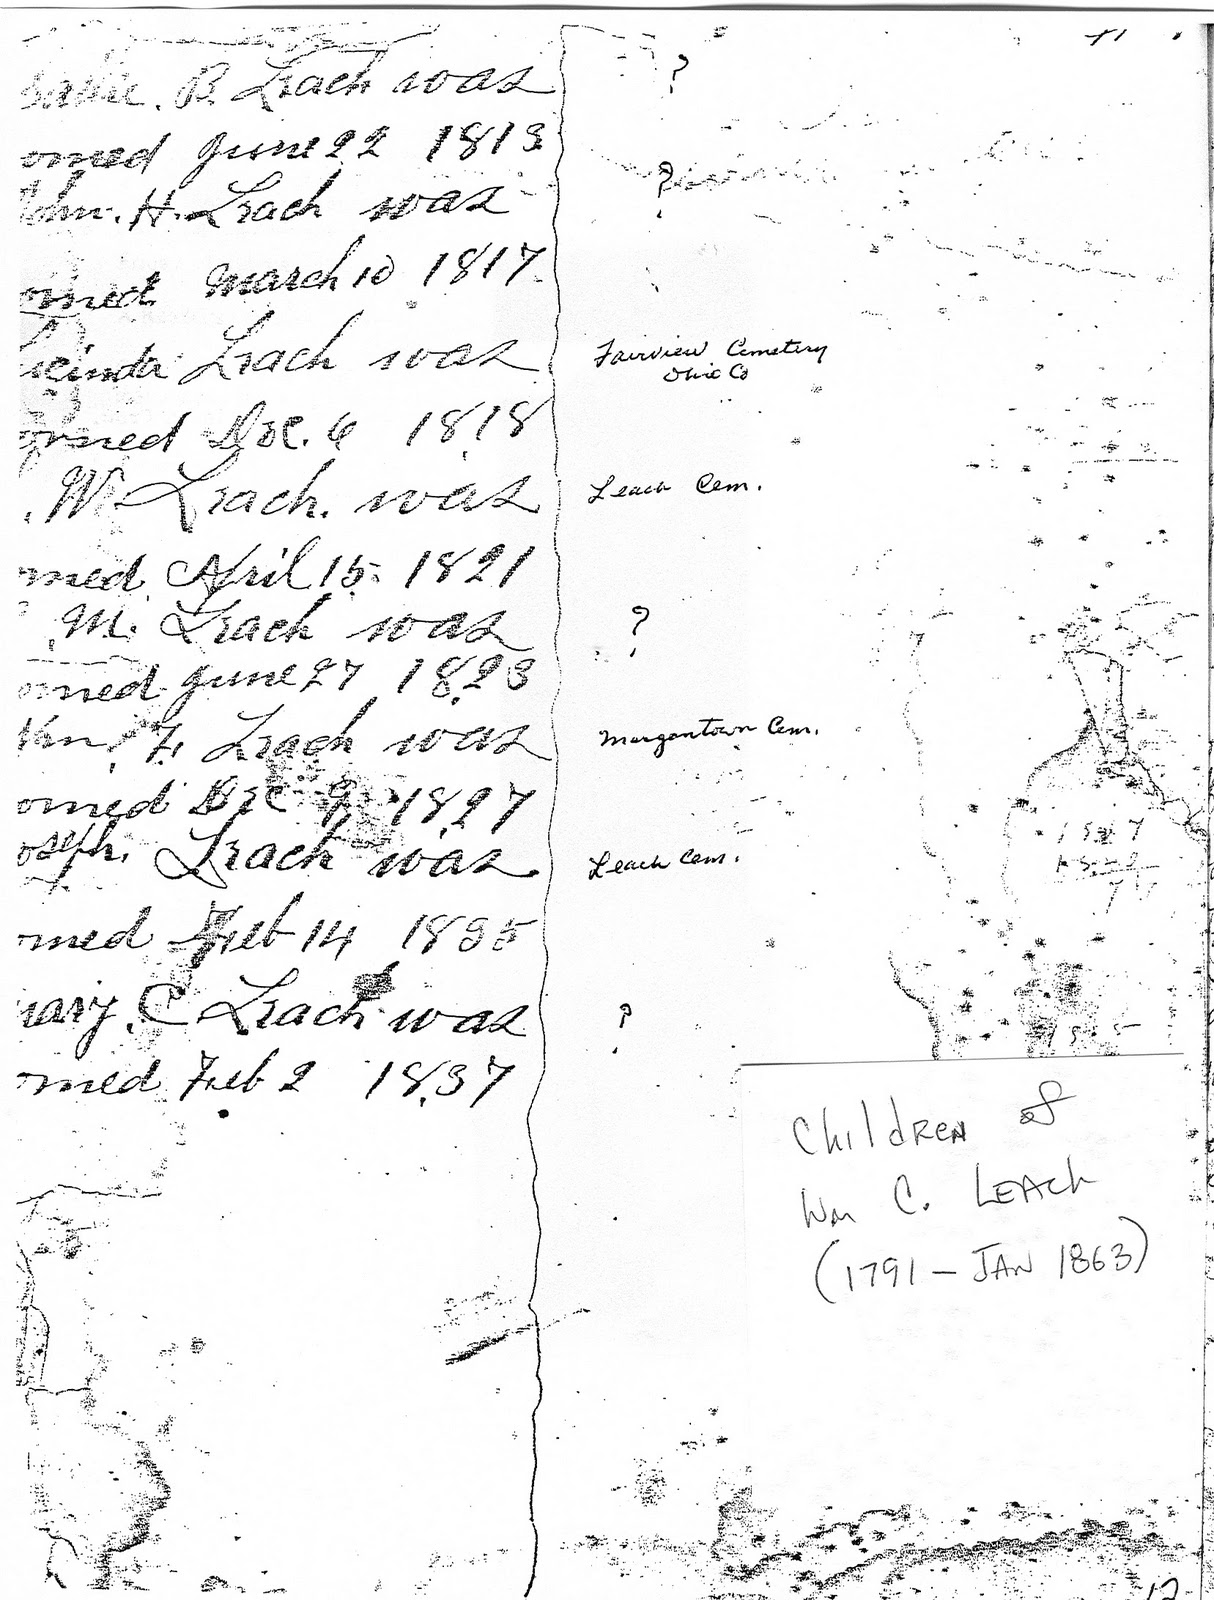 B. Leach was ?
orned June 22 1813
ohn. H. Leach was ?
orned March 10 1817
ucinda Leach was Fairview Cemetery
Ohio Co
orned Dec. 6 1818
. W. Leach. was Leach Cem.
rned April 15. 1821
. M. Leach was ?
orned June 27 1823
F. Leach was Morgantown Cem.
orned Dec 9 1827
oseph. Leach was Leach Cem.
rned Feb 14 1835
mary. C Leach was ?
orned Feb 2 1837
Children of
Wm C. Leach
(1791 – Jan 1863)
12